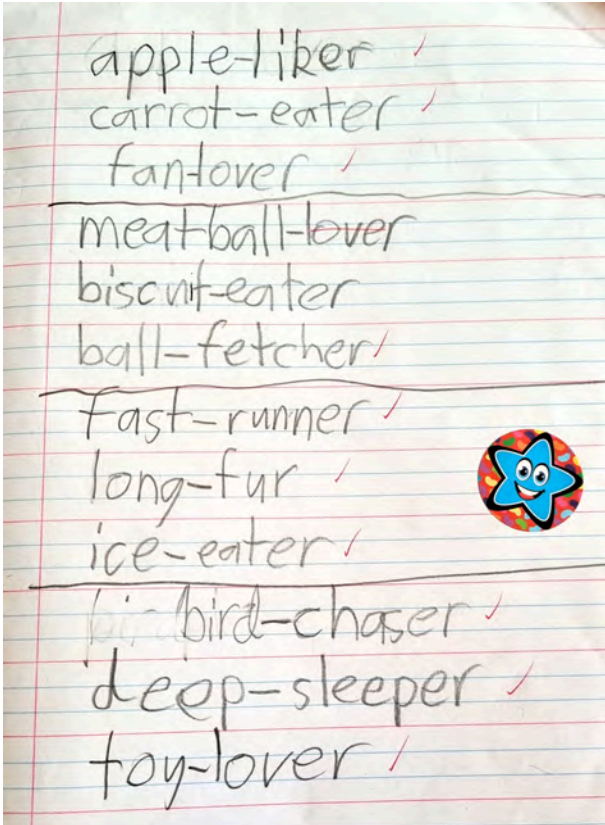 apple-liker
carrot-eater
fan-lover
meat-ball-lover
biscuit-eater
ball-fetcher
fast-runner
long-fur
ice-eater
bird-chaser
deep-sleeper
toy-lover